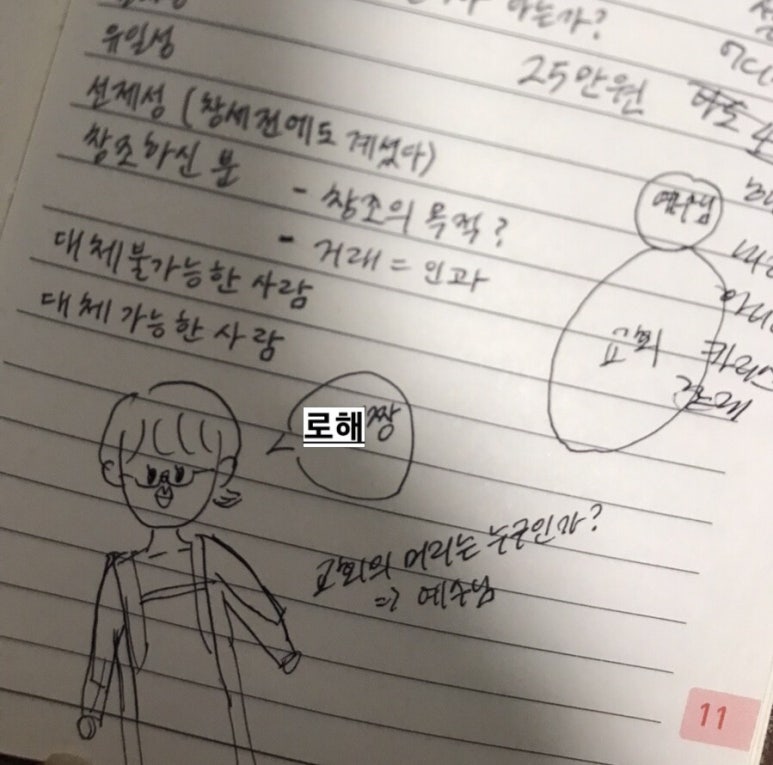 아는가?
유일성
25만원
선제성 (창세전에도 계셨다)
창조하신 분
- 창조의 목적?
예수님
- 거래 = 인과
대체불가능한 사람
대체 가능한 사람
교회
로해짱
교회의 머리는 누구인가?
=> 예수님
11